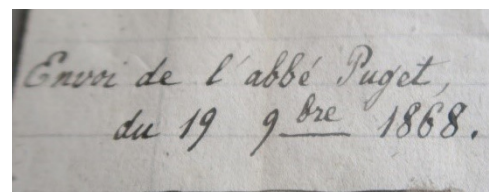 Envoi de l'abbé Puget,
du 19 9bre 1868.